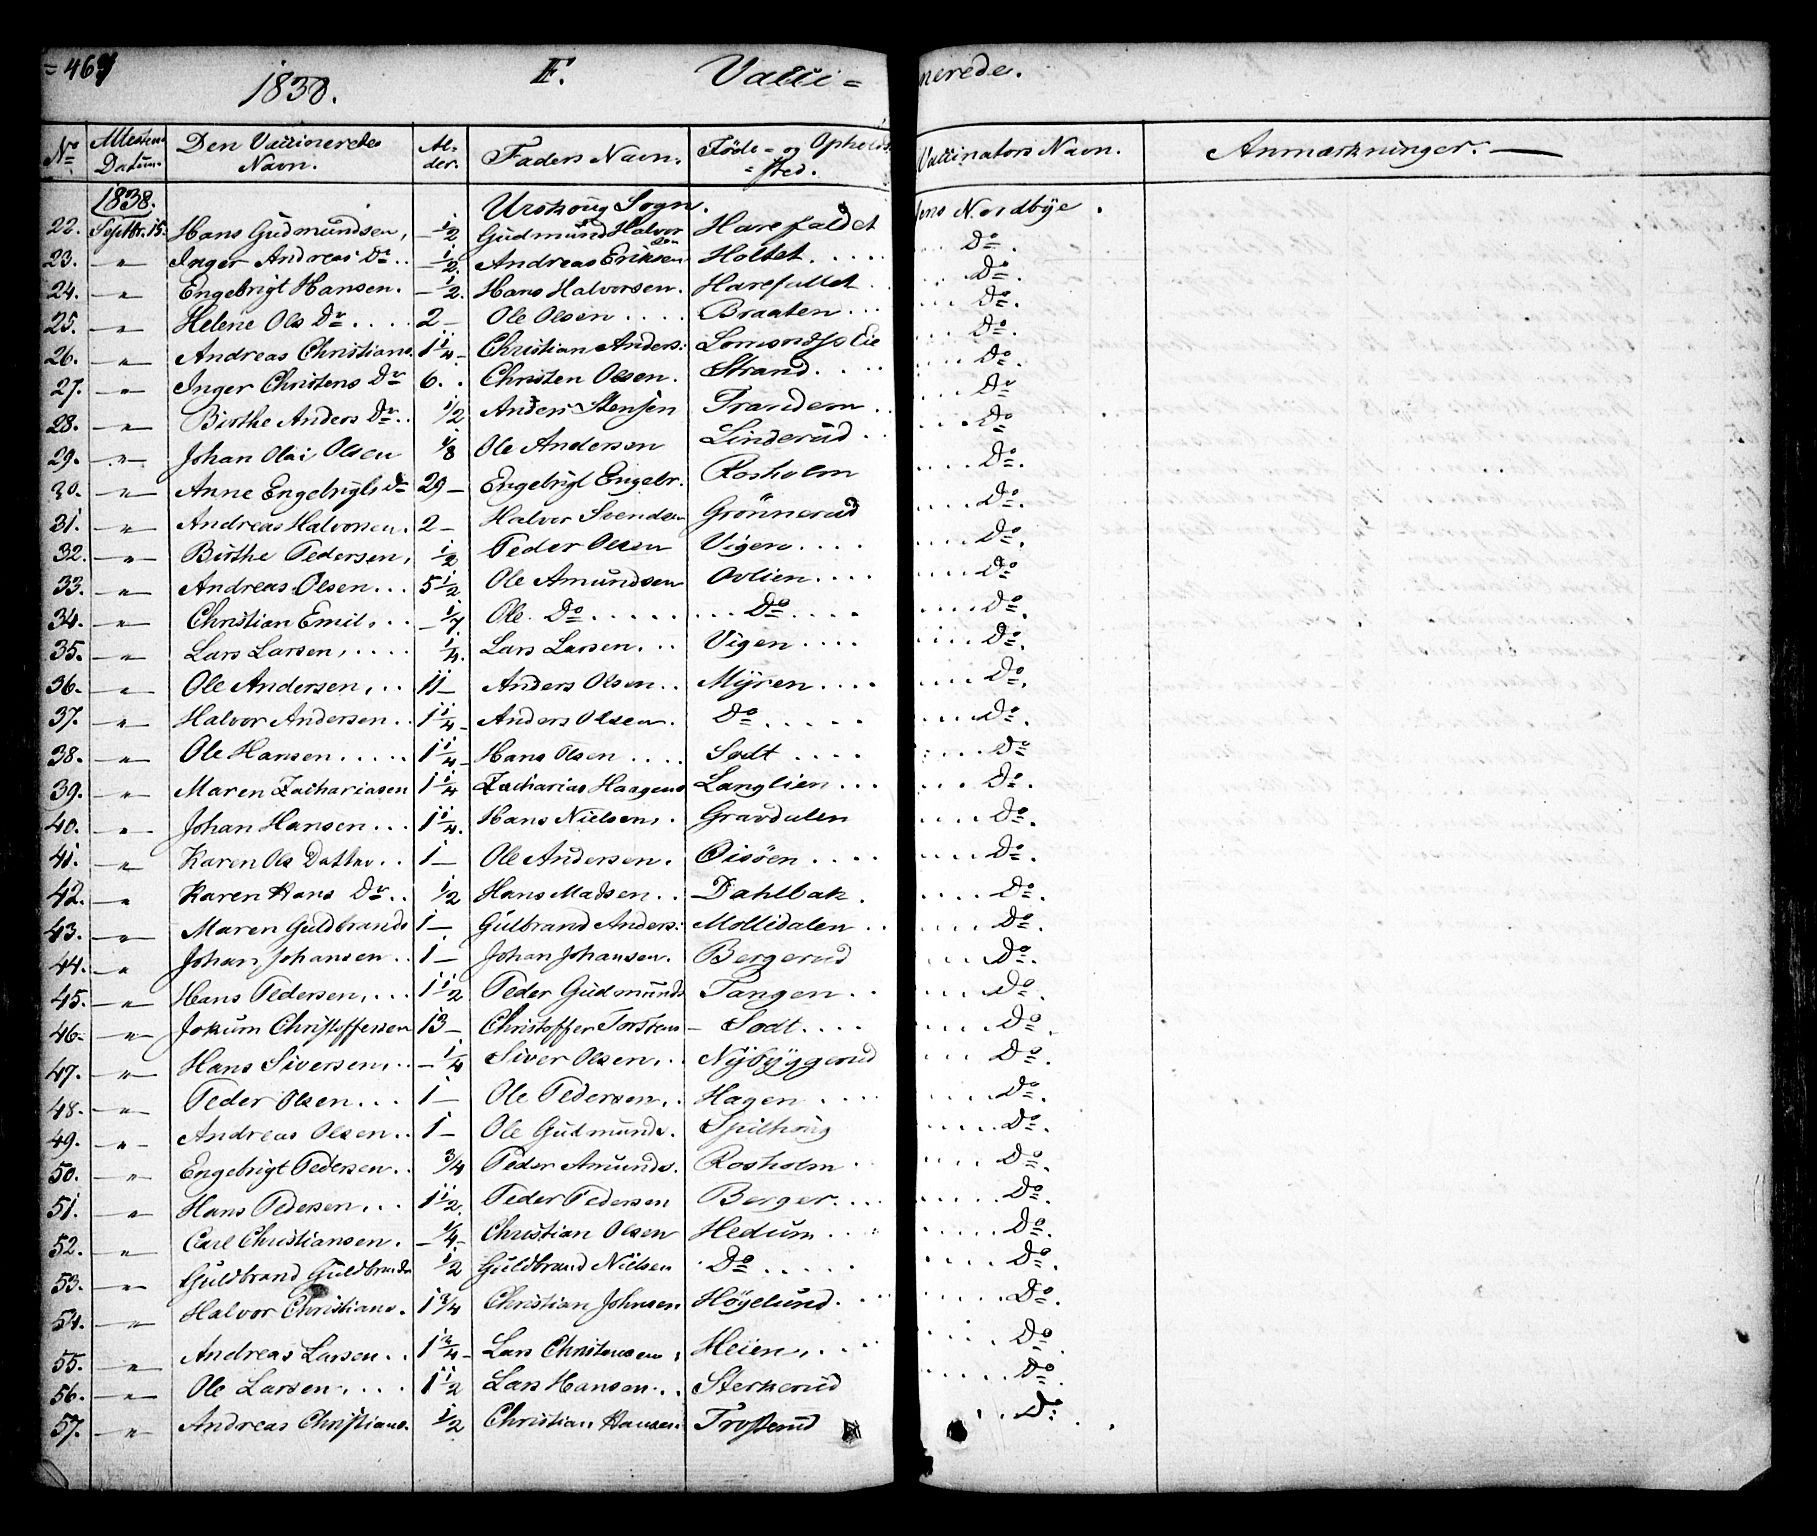 = 467
1838. F. Vacci= nerede.
No. Attestens Datum. Den Vaccineredes Navn. Al-der. Faders Navn. Føde- og Opholds =sted. Vaccinators Navn. Anmærkninger. —
1838. Urskoug Sogn.
22. Septbr. 15. Hans Gudmundsen, — 1/2 Gudmund Halvorsen Harefaldet Jens Nordbye.
23. — " — Inger Andreas Dr.. — 1/2. Andreas Eriksen Holtet. . . . . . . Do.
24. — " — Engebrigt Hansen. — 1/2. Hans Halvorsen. Harefallet . . . . Do.
25. — " — Helene Ols Dr. . . . . 2 — Ole Olsen . . . . Braaten . . . . . . Do.
26. — " — Andreas Christians. 1 1/4 — Christian Anders: Eie . . . . Do.
27. — " — Inger Christens Dr 6. . Christen Olsen. Strand. . . . . . . . Do.
28. — " — Birthe Anders Dr.. 1/2 Anders Stensen Frandem . . . . . . Do
29. — " — Johan Olai Olsen 1/8 Ole Andersen Linderud . . . . . . Do
30. — " — Anne Engebrigts Dr 29 — Engebrigt Engebr. Rosholm . . . . Do.
31. — " — Andreas Halvorsen. 2 — Halvor Svendsen Grönnerud . . . . Do.
32. — " — Birthe Pedersen, 1/2 Peder Olsen Vigen . . . . . . . . Do.
33. — " — Andreas Olsen . . . 5 1/2 Ole Amundsen Ovlien . . . . . . . . Do
34. — " — Christian Emil, . . — 1/7 Ole Do . . . . . . . . Do . . . . . . . . Do.
35. — " — Lars Larsen, . . . . 1/4. Lars Larsen. . . Vigen . . . . . . . . Do.
36. — " — Ole Andersen, . . 11 — Anders Olsen . . Myren . . . . . . . . Do.
37. — " — Halvor Andersen . . 1 1/4 — Anders Olsen. Do . . . . . . . . . Do.
38. — " — Ole Hansen . . . . . 1 1/4 — Hans Olsen . . . . Sodt . . . . . . . . Do
39. — " — Maren Zachariasen 1 1/4 Zacharias Haagens Langlien . . . . . . Do.
40. — " — Johan Hansen . . . 1 1/4. Hans Nielsen, . Gravdalen . . . . Do.
41. — " — Karen Ols Datter . . 1 — Ole Andersen. Öisöen . . . . . . . . Do.
42. — " — Karen Hans Dr. . . 1/2 Hans Madsen . . Dahlbak . . . . . Do.
43. — " — Maren Guldbrands 1 — Gulbrand Anders: Mollidalen . . . . . . Do.
44. — " — Johan Johansen . . 1 — Johan Johansen. Bergerud . . . . Do.
45. — " — Hans Pedersen, . . . 1 1/2 Peder Gudmunds Tangen . . . . . . Do.
46. — " — Jokum Christoffersen 13 — Christoffer Torstens — Sodt . . . . . . . . Do.
47. — " — Hans Siversen, . . — 1/4 Siver Olsen, . . Nybyggerud . . . Do.
48. — " — Peder Olsen . . . 1 — Ole Pedersen, . Hagen . . . . . . . . Do.
49. — " — Andreas Olsen . . 1 — Ole Gudmunds. Spilhoug . . . . Do.
50. — " — Engebrigt Pedersen . . 3/4 Peder Amunds. Rosholm . . . . . Do.
51. — " — Hans Pedersen, . . . 1 1/2. Peder Pedersen Berger . . . . . . . Do.
52. — " — Carl Christiansen . — 1/4 — Christian Olsen Hedum . . . . . . . Do.
53. — " — Guldbrand Guldbrands 1/2 Guldbrand Nielsen . Do . . . . . . . . . Do.
54. — " — Halvor Christians. 1 3/4 Christian Johnsen Høgelund . . . . . . Do.
55. — " — Andreas Larsen . . 1 3/4 — Lars Christensen, Heien, . . . . . . . Do
56. — " — Ole Larsen, . . . . 1 1/2 Lars Hansen . . . Sterkerud . . . . . Do.
57. — " — Andreas Christians. 1/2 Christian Hansen. Trosterud . . . Do.